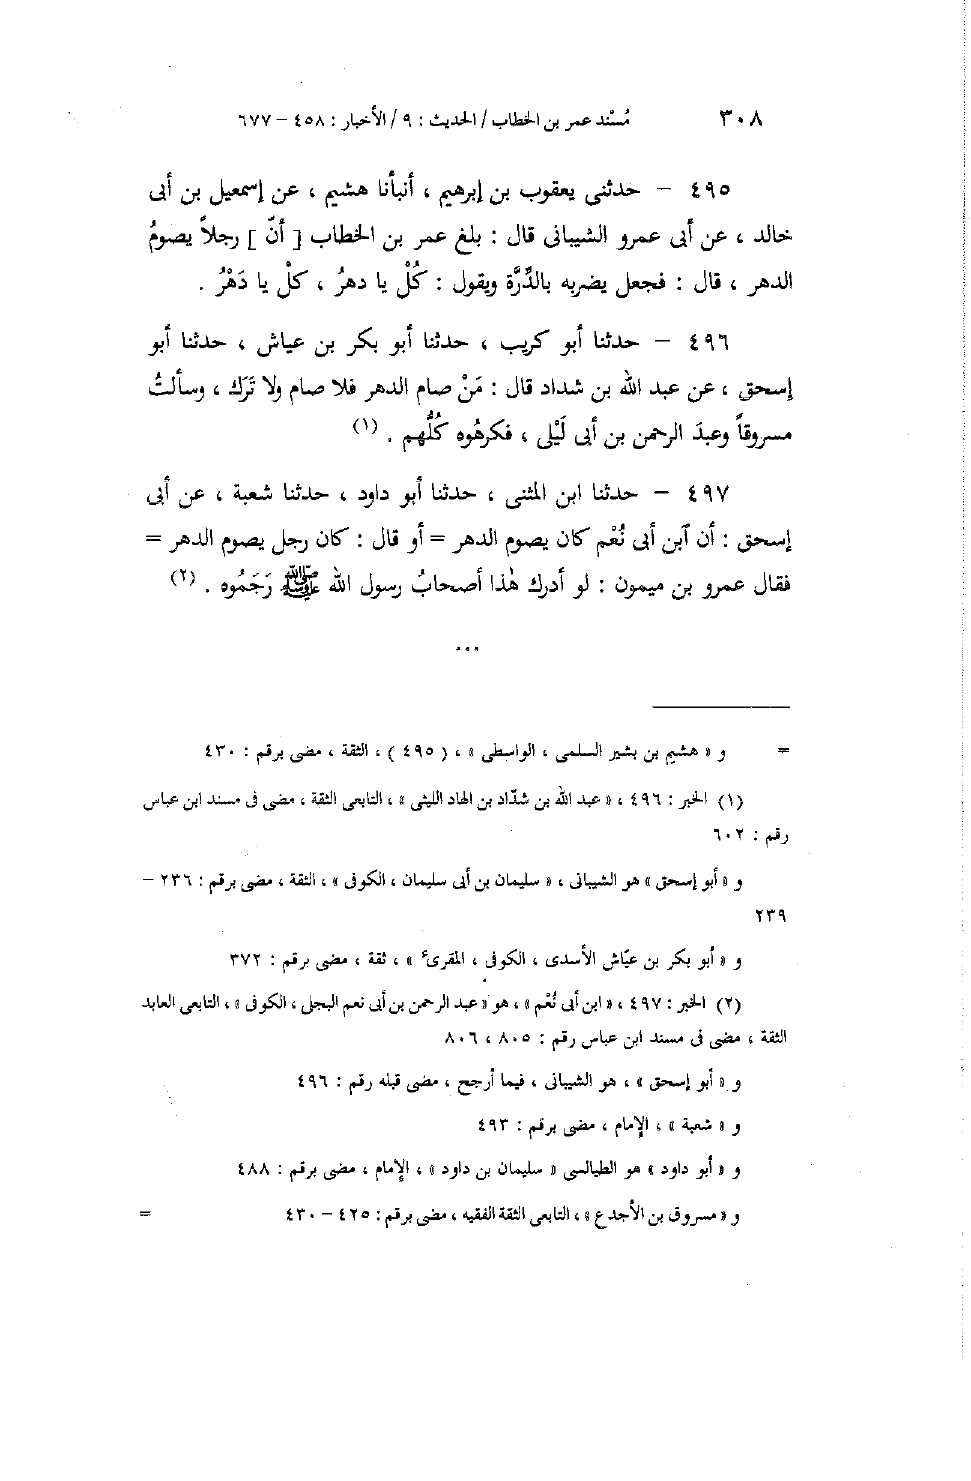 ٣٠٨ مُسْند عمر بن الخطاب / الحديث : ٩ / الأخبار : ٤٥٨ – ٦٧٧
٤٩٥ – حدثنى يعقوب بن إبرهيم ، أنبأنا هشيم ، عن إسمعيل بن أبى
خالد ، عن أبى عمرو الشيبانى قال : بلغ عمر بن الخطاب [ أنّ ] رجلاً يصومُ
الدهر ، قال : فجعل يضربه بالدِّرَّة ويقول : كُلْ يا دهرُ ، كلْ يا دَهْرُ .
٤٩٦ – حدثنا أبو كريب ، حدثنا أبو بكر بن عياش ، حدثنا أبو
إسحق ، عن عبد الله بن شداد قال : مَنْ صام الدهر فلا صام ولا تَرَك ، وسألتُ
مسروقاً وعبدَ الرحمن بن أبى لَيْلى ، فكرهُوه كُلُّهم . (١)
٤٩٧ – حدثنا ابن المثنى ، حدثنا أبو داود ، حدثنا شعبة ، عن أبى
إسحق : أن آبن أبى نُعْم كان يصوم الدهر = أو قال : كان رجل يصوم الدهر =
فقال عمرو بن ميمون : لو أدرك هٰذا أصحابُ رسول الله ﷺ رَجَمُوه . (٢)
...
= و « هشيم بن بشير السلمى ، الواسطى » ، ( ٤٩٥ ) ، الثقة ، مضى برقم : ٤٣٠
(١) الخبر : ٤٩٦ ، « عبد الله بن شدّاد بن الهاد الليثى » ، التابعى الثقة ، مضى فى مسند ابن عباس
رقم : ٦٠٢
و « أبو إسحق » هو الشيبانى ، « سليمان بن أبى سليمان ، الكوفى » ، الثقة ، مضى برقم : ٢٣٦ –
٢٣٩
و « أبو بكر بن عيّاش الأسدى ، الكوفى ، المقرئ » ، ثقة ، مضى برقم : ٣٧٢
(٢) الخبر : ٤٩٧ ، « ابن أبى نُعْم » ، هو « عبد الرحمن بن أبى نعم البجلى ، الكوفى » ، التابعى العابد
الثقة ، مضى فى مسند ابن عباس رقم : ٨٠٥ ، ٨٠٦
و « أبو إسحق » ، هو الشيبانى ، فيما أرجح ، مضى قبله رقم : ٤٩٦
و « شعبة » ، الإمام ، مضى برقم : ٤٩٣
و « أبو داود » هو الطيالسى « سليمان بن داود » ، الإمام ، مضى برقم : ٤٨٨
و « مسروق بن الأجدع » ، التابعى الثقة الفقيه ، مضى برقم : ٤٢٥ – ٤٣٠ =